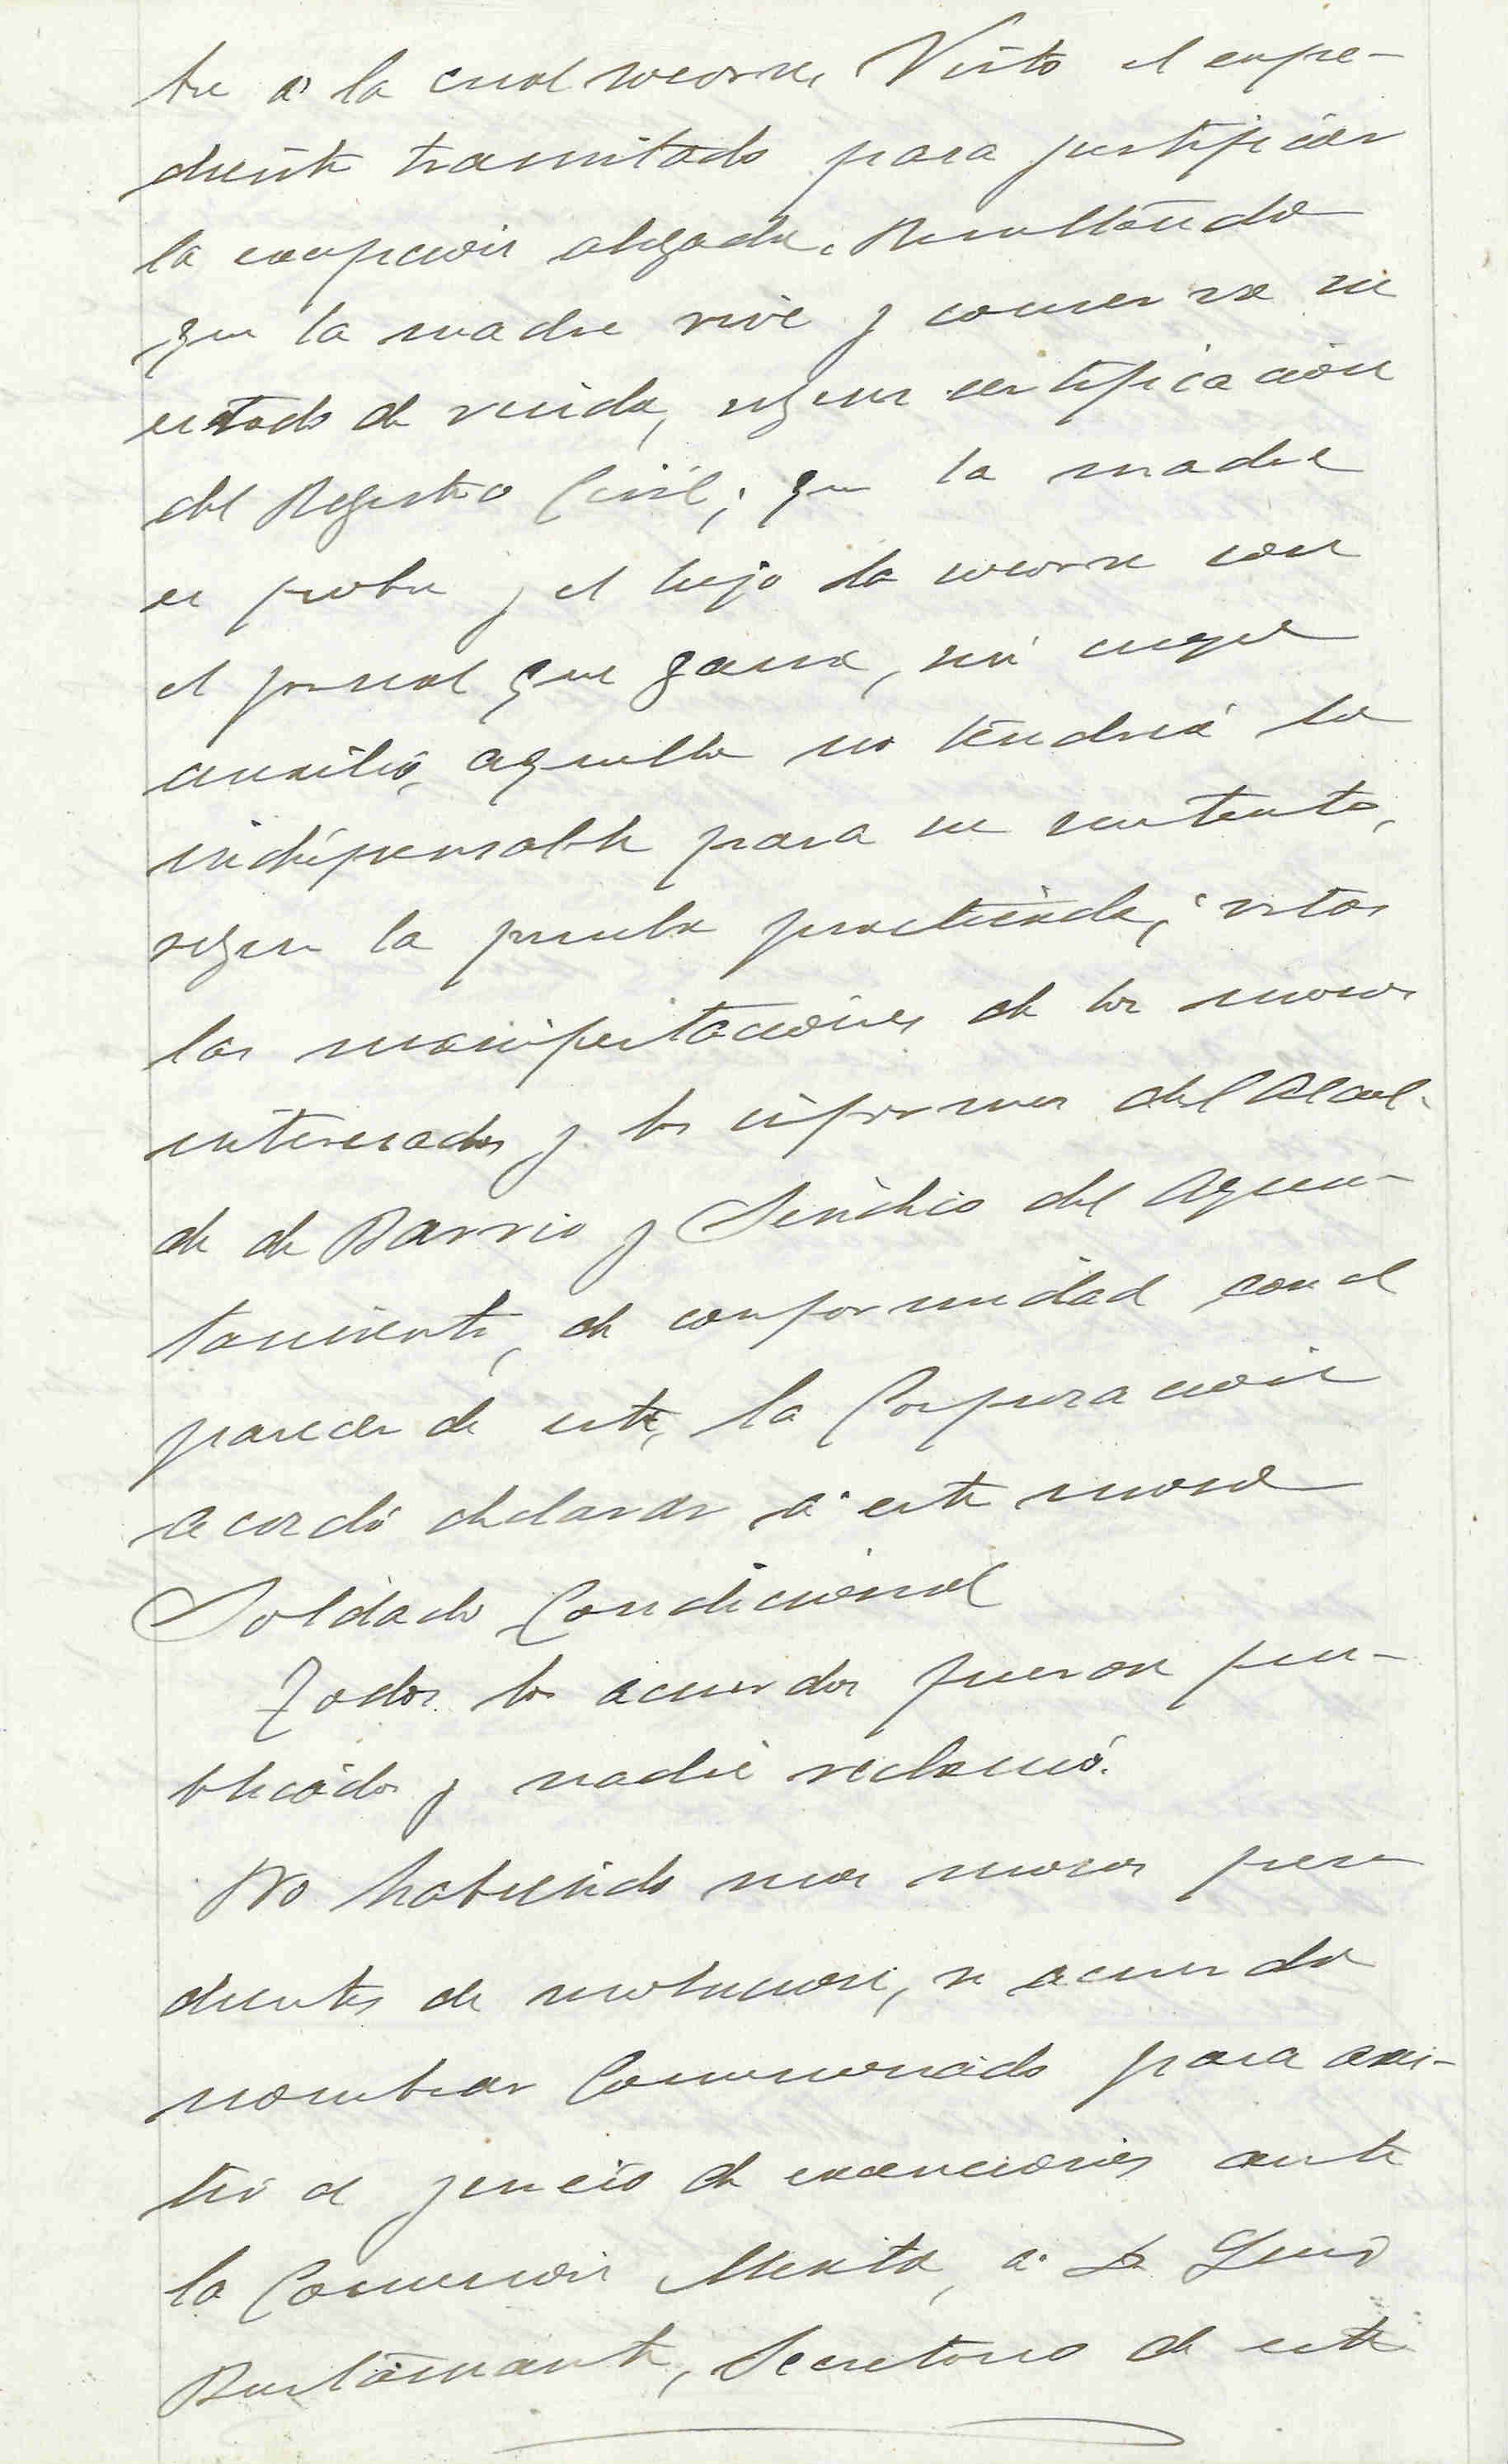 dre á la cual socorre, Visto el expe-
diente tramitado para justificar
la excepcion alegada. Resultando
que la madre vive y conserva su
estado de viuda, segun certificación
del Registro Civil; que la madre
es pobre y el hijo la socorre con
el jornal que gana, sin cuyo
auxilio, aquella no tendria lo
indispensable para su sustento,
segun la prueba practicada; vistas
las manifestaciones de los mozos
interesados y los informes del Alcal-
de de Barrio y Sindico del Ayun-
tamiento, de conformidad con el
parecer de este, la Corporacion
acordó declarar á este mozo
Soldado Condicional
Todos los acuerdos fueron pu-
blicados y nadie reclamó.
No habiendo mas mozos pen
dientes de resolucion, se acuerda
nombrar Comisionado para asis-
tir al juicio de exenciones ante
la Comision Mixta, á D Luis
Bustamante, Secretario de este